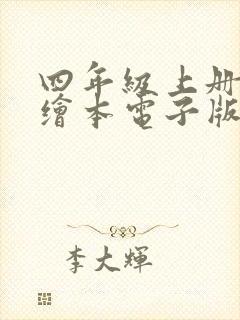 四年級上册
繪本電子版
李大輝